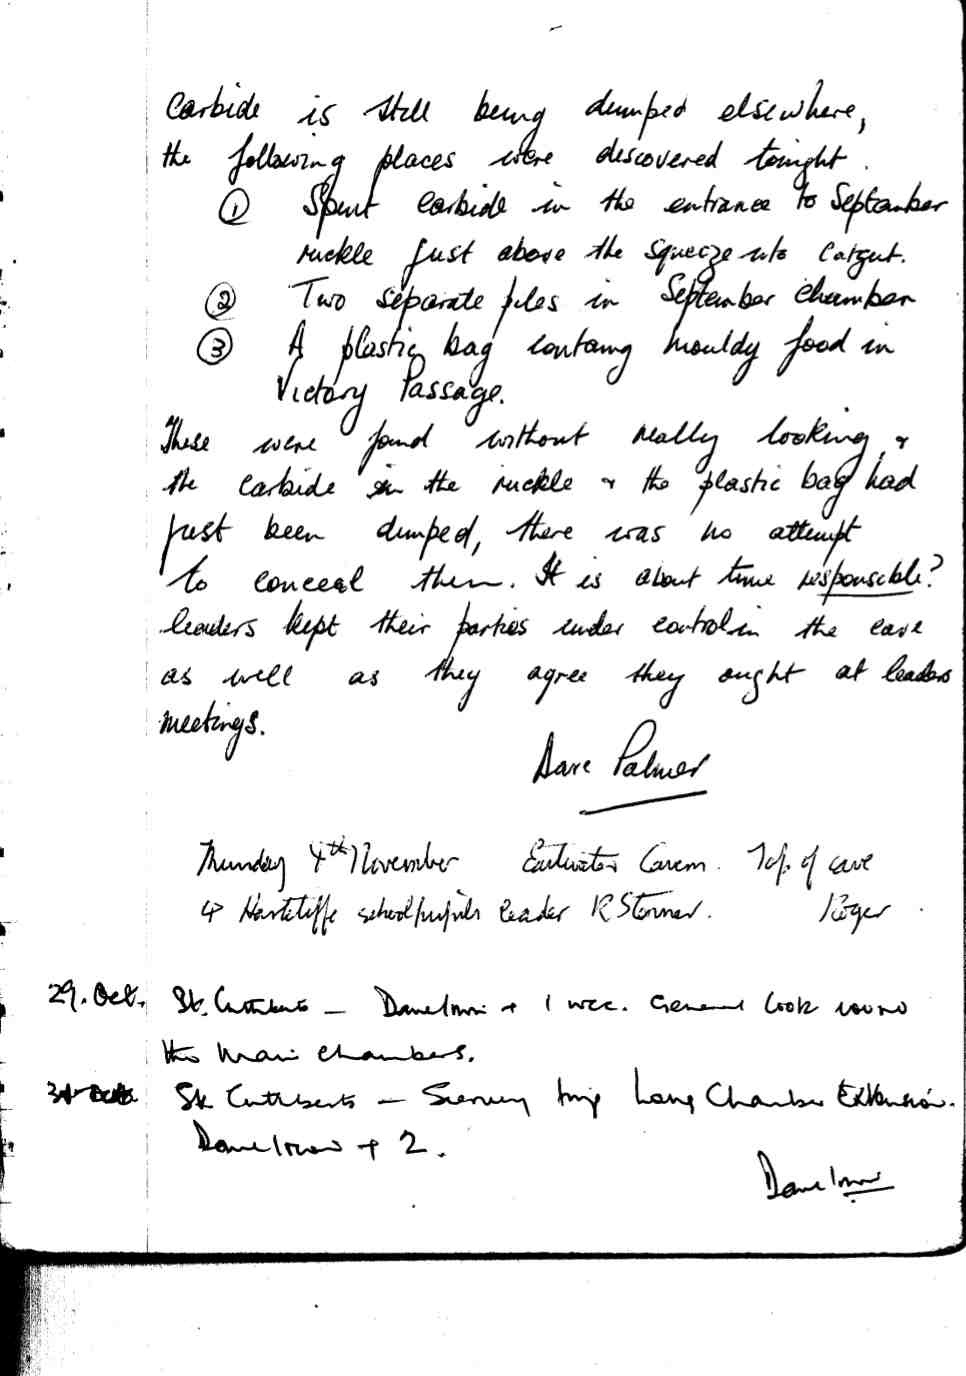 Carbide is still being dumped elsewhere,
the following places were discovered tonight.
① Spent carbide in the entrance to September
ruckle just above the squeeze into Catgut.
② Two separate piles in September Chamber
③ A plastic bag containg mouldy food in
Victory Passage.
These were found without really looking, &
the carbide in the ruckle & the plastic bag had
just been dumped, there was no attempt
to conceal them. It is about time responsible?
leaders kept their parties under control in the cave
as well as they agree they ought at leaders
meetings.
Dave Palmer
Thursday 4th November Eastwater Cavern. Top of cave
4 Hartcliffe school pupils leader R Stenner. Roger
29. Oct. St. Cuthberts – Dave Irwin + 1 wcc. General look round
the main chambers.
St Cuthberts – Survey trip Long Chamber Extension.
Dave Irwin + 2.
Dave Irwin